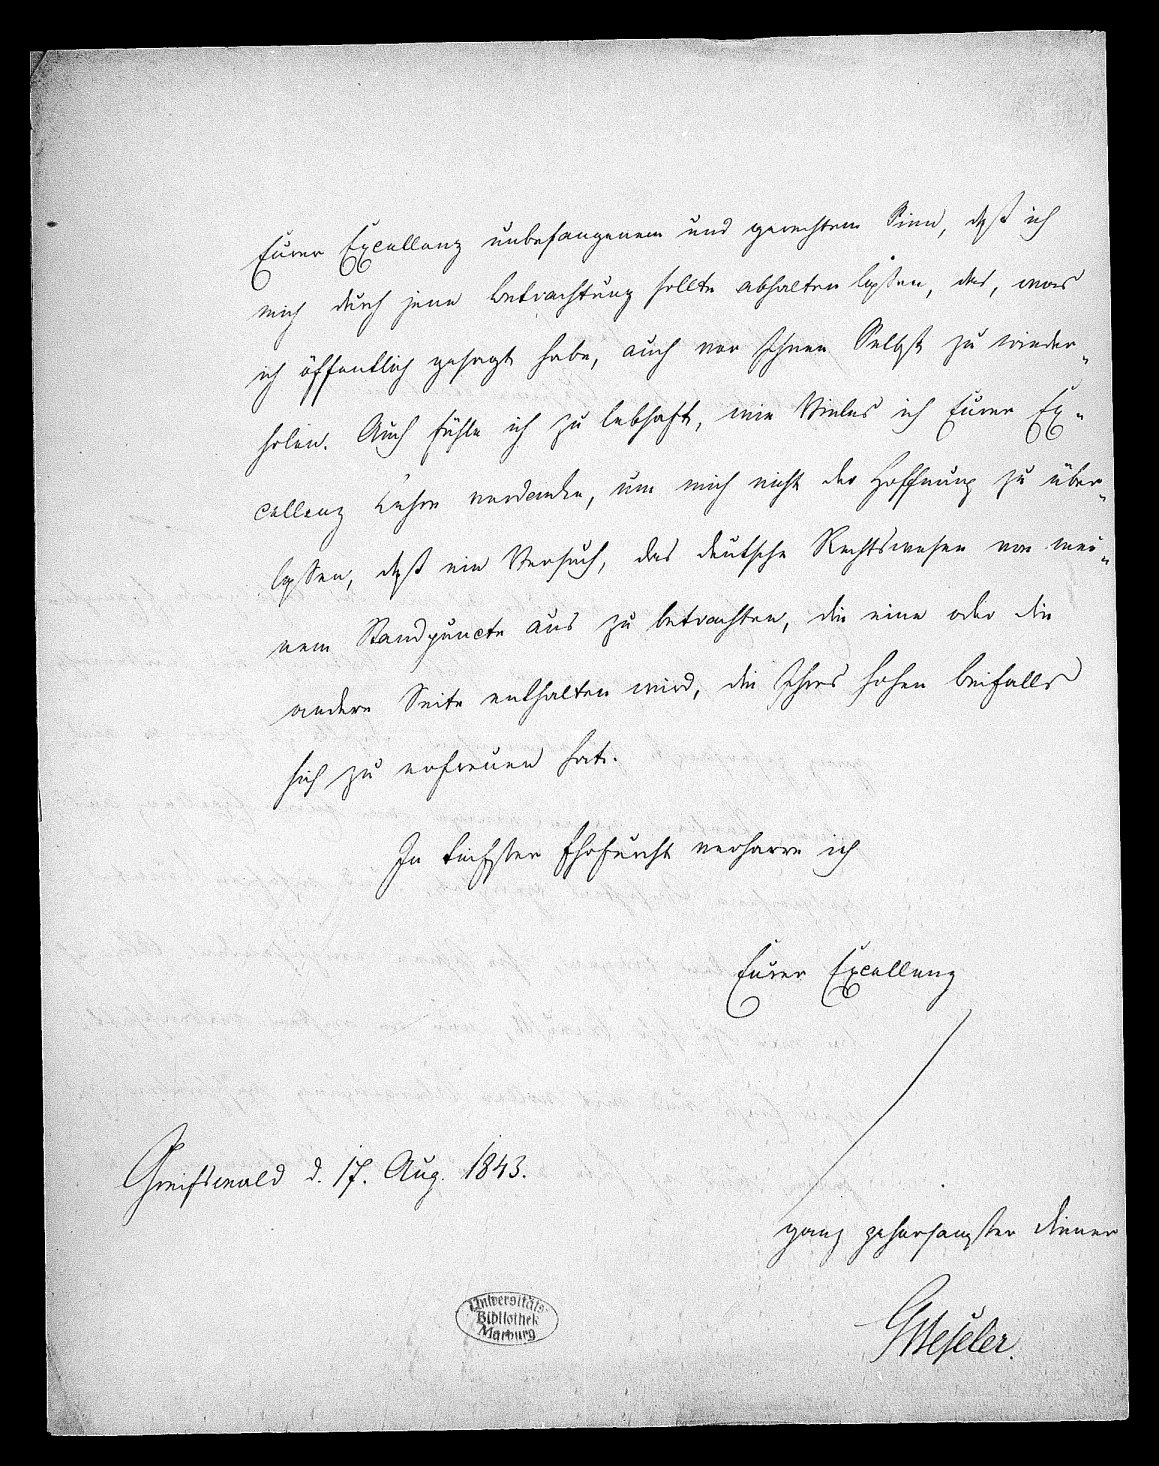 Eurer Excellenz unbefangenem und gerechtem Sinn, daß ich
mich durch jene Betrachtung sollte abhalten lassen, das, was
ich öffentlich gesagt habe, auch vor Ihnen Selbst zu wieder-
holen. Auch fühle ich zu lebhaft, wie Vieles ich Eurer Ex-
cellenz Lehre verdanke, um mich nicht der Hoffnung zu über-
lassen, daß ein Versuch, das deutsche Rechtswesen von mei-
nem Standpuncte aus zu betrachten, die eine oder die
andere Seite enthalten wird, die Ihres hohen Beifalls
sich zu erfreuen hat.
In tiefster Ehrfurcht verharre ich
Eurer Excellenz
Greifswald d. 17. Aug. 1843.
ganz gehorsamster Diener
GBeseler.
Universitäts-
Bibliothek
Marburg